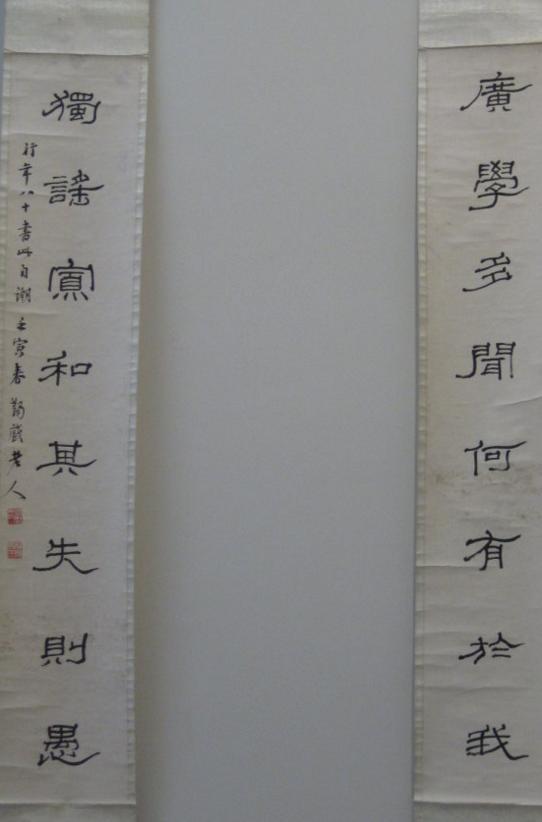 廣學多聞何有於我
獨謠寡和其失則愚
行年八十書此自謿壬寅春蠲戲老人